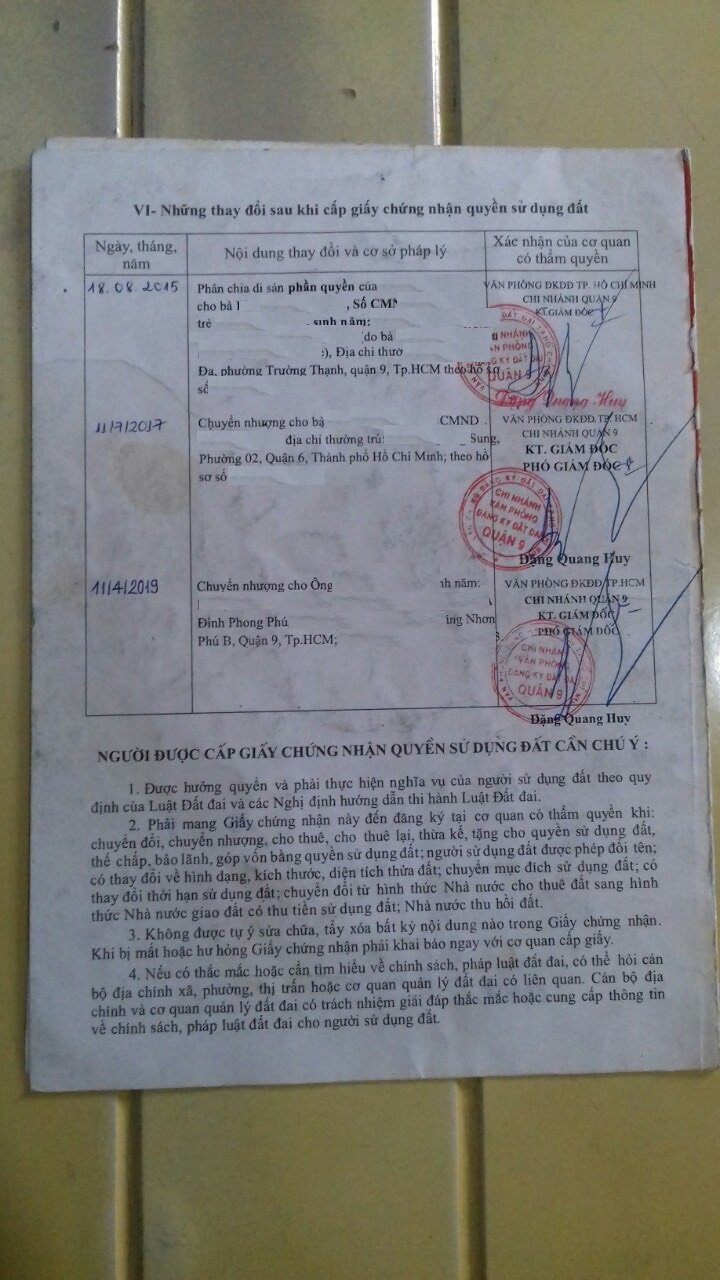 VI- Những thay đổi sau khi cấp giấy chứng nhận quyền sử dụng đất
Ngày, tháng, năm
Nội dung thay đổi và cơ sở pháp lý
Xác nhận của cơ quan có thẩm quyền
18.08.2015
Phân chia di sản phần quyền của
cho bà
, Số CMN
trê
sinh năm:
do bà
), Địa chỉ thườ
Đa, phường Trường Thạnh, quận 9, Tp.HCM theo hồ sơ
số
VĂN PHÒNG ĐKĐĐ TP. HỒ CHÍ MINH
CHI NHÁNH QUẬN 9
KT.GIÁM ĐỐC
QUẬN 9
Đặng Quang Huy
11/7/2017
Chuyển nhượng cho bà
CMND
địa chỉ thường trú:
Sung,
Phường 02, Quận 6, Thành phố Hồ Chí Minh; theo hồ
sơ số
VĂN PHÒNG ĐKĐĐ.TP.HCM
CHI NHÁNH QUẬN 9
KT. GIÁM ĐỐC
PHÓ GIÁM ĐỐC
CHI NHÁNH
VĂN PHÒNG
ĐĂNG KÝ ĐẤT ĐAI
QUẬN 9
Đặng Quang Huy
11/4/2019
Chuyển nhượng cho Ông
nh năm:
ăng Nhơn
Đình Phong Phú
Phú B, Quận 9, Tp.HCM;
VĂN PHÒNG ĐKĐĐ.TP.HCM
CHI NHÁNH QUẬN 9
KT. GIÁM ĐỐC
PHÓ GIÁM ĐỐC
CHI NHÁNH
VĂN PHÒNG
ĐĂNG KÝ ĐẤT ĐAI
QUẬN 9
Đặng Quang Huy
NGƯỜI ĐƯỢC CẤP GIẤY CHỨNG NHẬN QUYỀN SỬ DỤNG ĐẤT CẦN CHÚ Ý :
1. Được hưởng quyền và phải thực hiện nghĩa vụ của người sử dụng đất theo quy
định của Luật Đất đai và các Nghị định hướng dẫn thi hành Luật Đất đai.
2. Phải mang Giấy chứng nhận này đến đăng ký tại cơ quan có thẩm quyền khi:
chuyển đổi, chuyển nhượng, cho thuê, cho thuê lại, thừa kế, tặng cho quyền sử dụng đất,
thế chấp, bảo lãnh, góp vốn bằng quyền sử dụng đất; người sử dụng đất được phép đổi tên;
có thay đổi về hình dạng, kích thước, diện tích thửa đất; chuyển mục đích sử dụng đất; có
thay đổi thời hạn sử dụng đất; chuyển đổi từ hình thức Nhà nước cho thuê đất sang hình
thức Nhà nước giao đất có thu tiền sử dụng đất; Nhà nước thu hồi đất.
3. Không được tự ý sửa chữa, tẩy xóa bất kỳ nội dung nào trong Giấy chứng nhận.
Khi bị mất hoặc hư hỏng Giấy chứng nhận phải khai báo ngay với cơ quan cấp giấy.
4. Nếu có thắc mắc hoặc cần tìm hiểu về chính sách, pháp luật đất đai, có thể hỏi cán
bộ địa chính xã, phường, thị trấn hoặc cơ quan quản lý đất đai có liên quan. Cán bộ địa
chính và cơ quan quản lý đất đai có trách nhiệm giải đáp thắc mắc hoặc cung cấp thông tin
về chính sách, pháp luật đất đai cho người sử dụng đất.